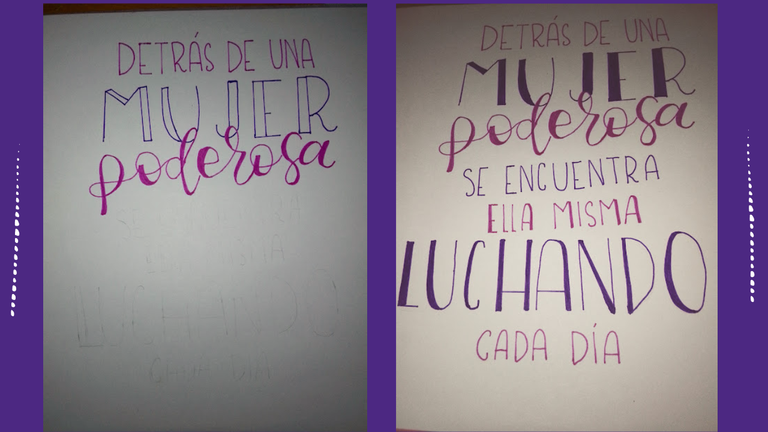 DETRÁS DE UNA
MUJER
poderosa
DETRÁS DE UNA
MUJER
poderosa
SE ENCUENTRA
ELLA MISMA
LUCHANDO
CADA DÍA